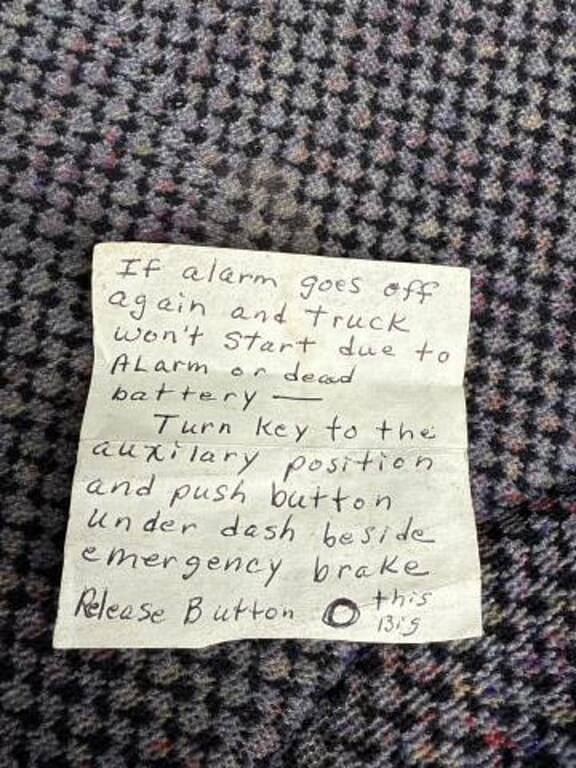 If alarm goes off
again and truck
won't start due to
Alarm or dead
battery —
Turn key to the
auxilary position
and push button
under dash beside
emergency brake
Release Button O this
Big